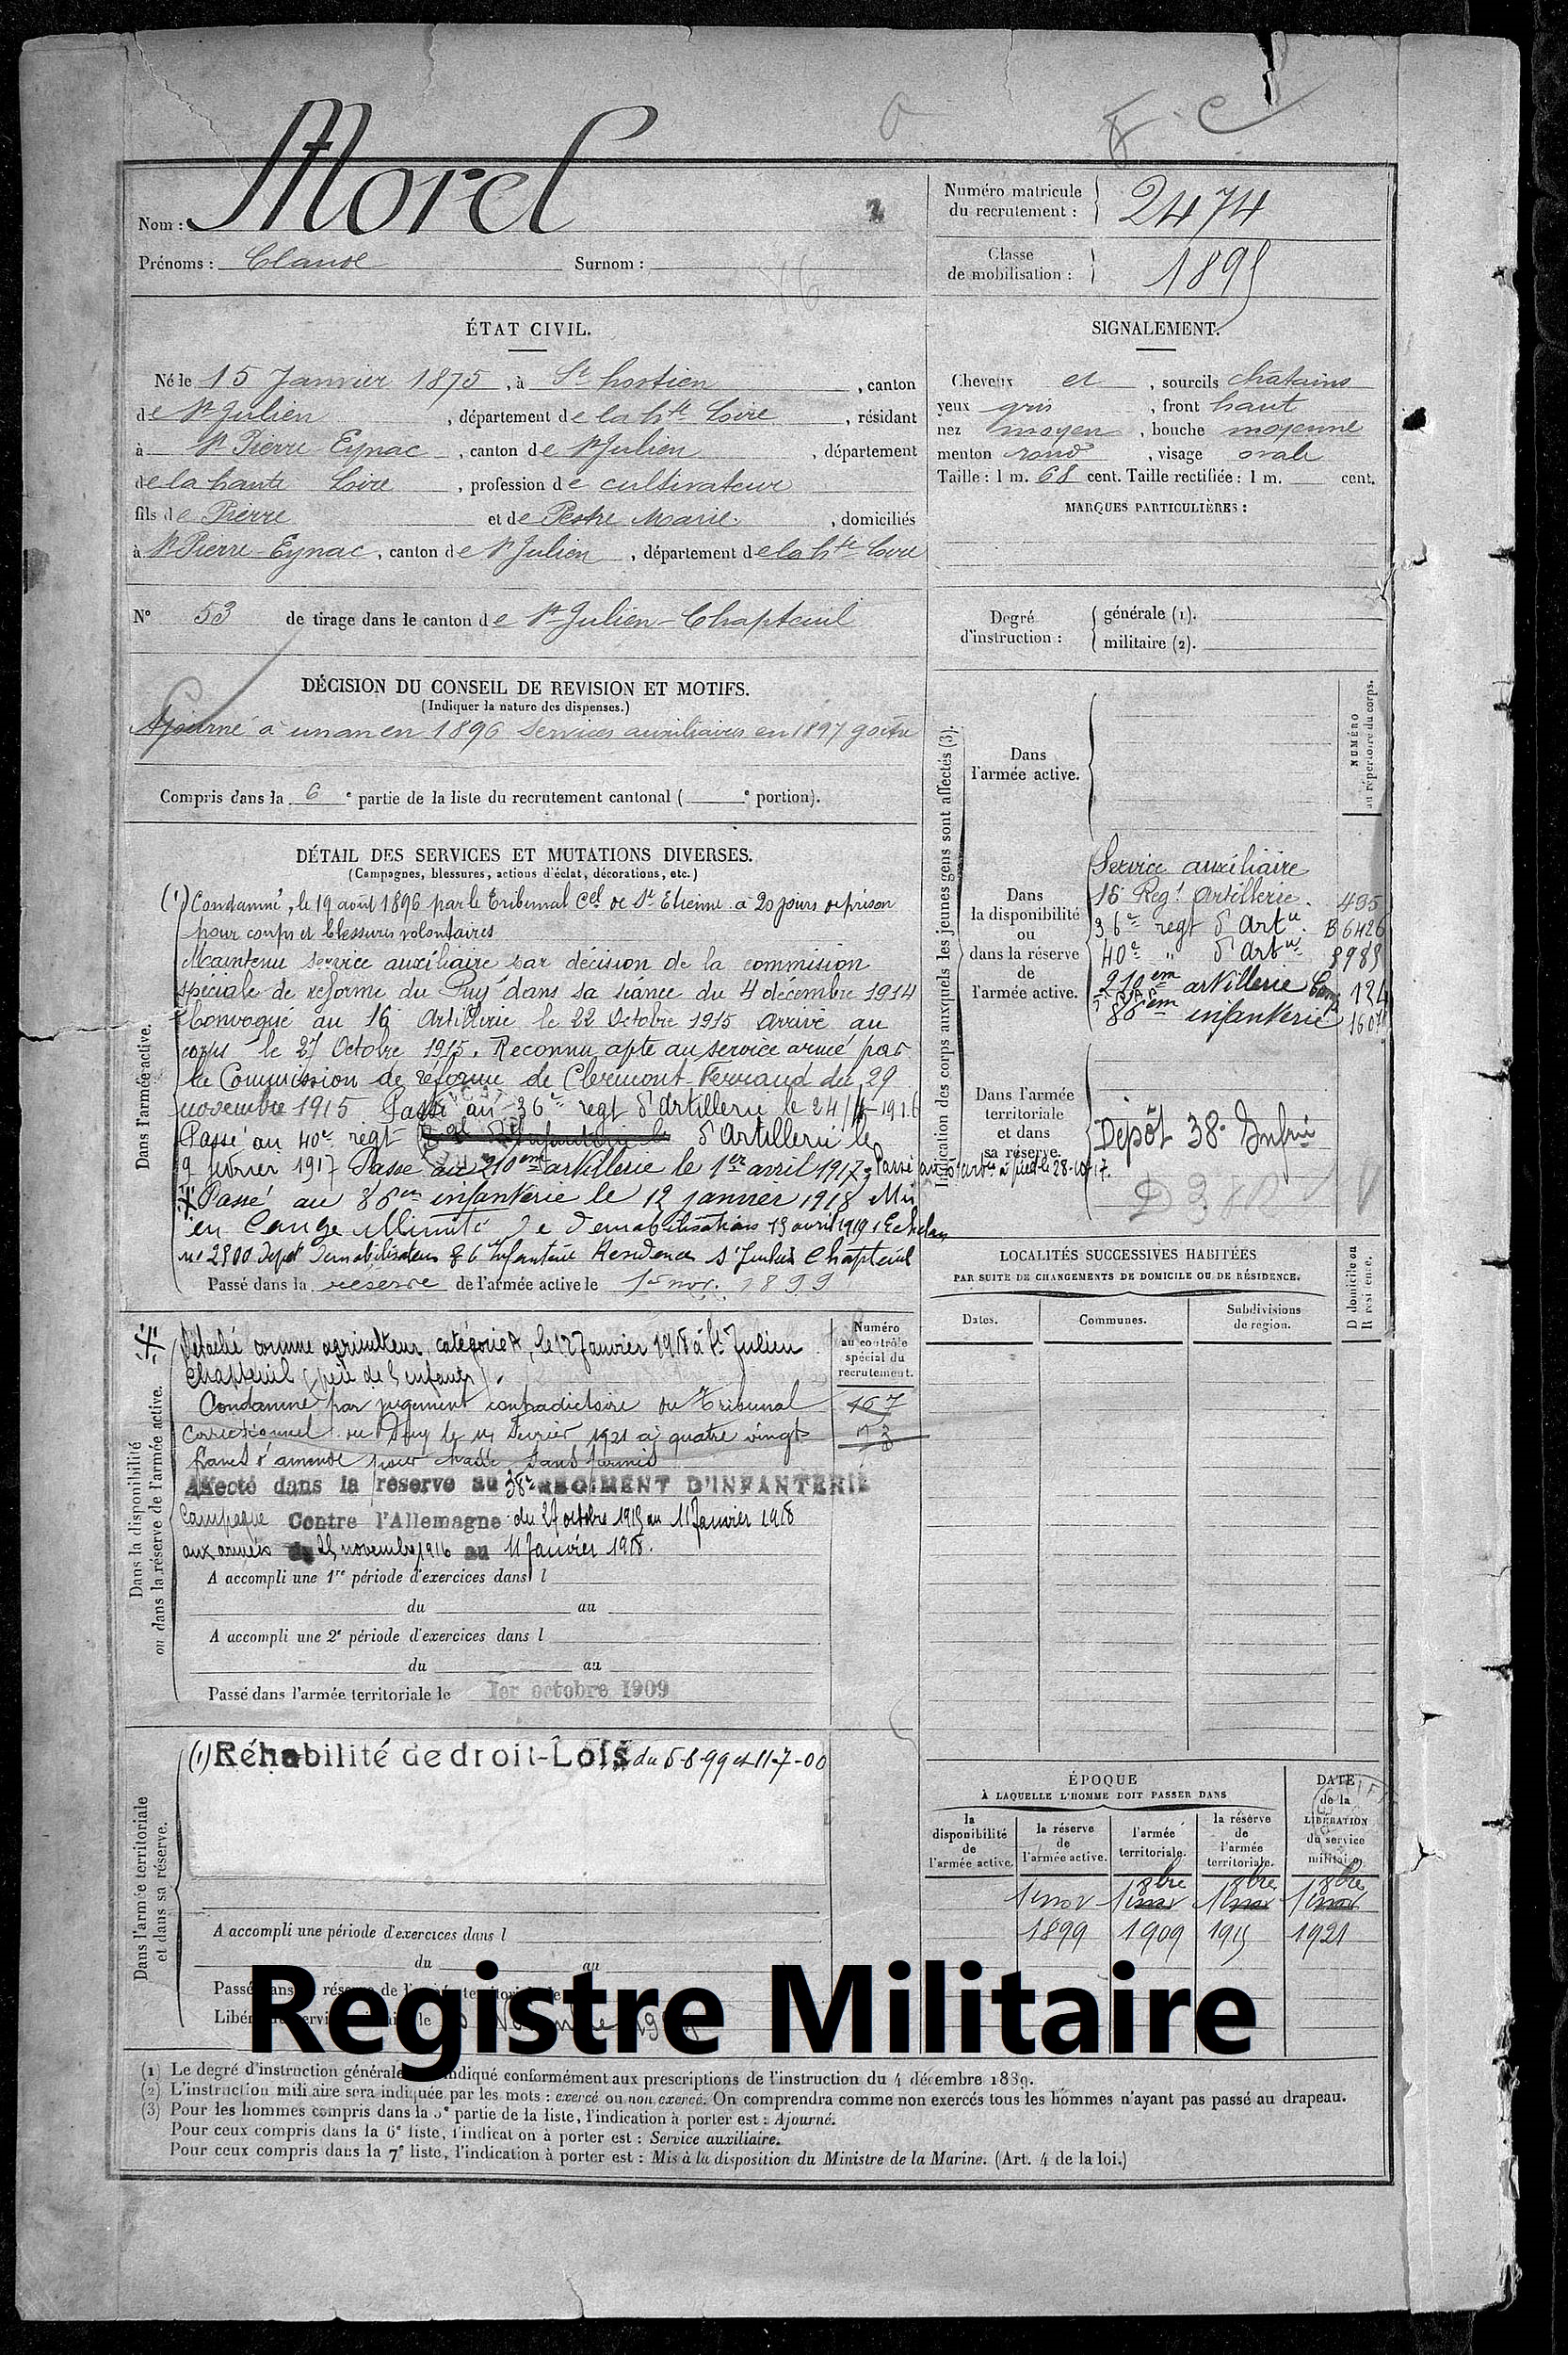 Morel
Nom :
Prénoms : Claude Surnom :
Numéro matricule
du recrutement : 2474
Classe
de mobilisation : 1895
ÉTAT CIVIL.
Né le 15 Janvier 1875, à St hostien, canton
de St Julien, département de la hte Loire, résidant
à St Pierre Eynac, canton de St Julien, département
de la haute Loire, profession de cultivateur
fils de Pierre et de Pestre Marie, domiciliés
à St Pierre-Eynac, canton de St Julien, département de la hte Loire
SIGNALEMENT.
Cheveux et, sourcils chatains
yeux gris, front haut
nez moyen, bouche moyenne
menton rond, visage ovale
Taille : 1 m. 68 cent. Taille rectifiée : 1 m. cent.
MARQUES PARTICULIÈRES :
N° 53 de tirage dans le canton de St Julien-Chapteuil
Degré
d'instruction :
générale (1).
militaire (2).
DÉCISION DU CONSEIL DE REVISION ET MOTIFS.
(Indiquer la nature des dispenses.)
Ajourné à un an en 1896 Services auxiliaires en 1897 goitre
Compris dans la 6e partie de la liste du recrutement cantonal ( e portion).
DÉTAIL DES SERVICES ET MUTATIONS DIVERSES.
(Campagnes, blessures, actions d'éclat, décorations, etc.)
Dans l'armée active.
(1) Condamné, le 19 août 1896 par le Tribunal Cel de St Etienne à 20 jours de prison
pour coups et blessures volontaires
Maintenu service auxiliaire par décision de la commision
spéciale de réforme du Puy dans sa séance du 4 décembre 1914
Convoqué au 16 Artillerie le 22 Octobre 1915 Arrivé au
corps le 27 Octobre 1915. Reconnu apte au service armé par
la Commission de réforme de Clermont-Ferrand du 29
novembre 1915 Passé au 36e regt d'Artillerie le 24/ 1916
Passé au 40e regt d'Artillerie le
9 février 1917 Passe au 210em artillerie le 1er avril 1917, Passé au à pied le 28-10-17.
Passé au 86em infanterie le 12 janvier 1918 Mis
en Congé Illimité de Demobilisation 19 avril 1919, Echelon
no 2800 Depot Demobilisateur 86 Infanterie Residence St Julien Chapteuil
Passé dans la reserve de l'armée active le 1er nov. 1899
Indication des corps auxquels les jeunes gens sont affectés (3).
NUMÉRO
au répertoire du corps.
Dans
l'armée active.
Dans
la disponibilité
ou
dans la réserve
de
l'armée active.
Service auxiliaire
16 Regt Artillerie. 495
36e regt d'Artie. B 6426
40e " d'Artie 8989
210em artillerie 124
86em infanterie
Dans l'armée
territoriale
et dans
sa réserve.
Dépôt 38e Infrie
LOCALITÉS SUCCESSIVES HABITÉES
PAR SUITE DE CHANGEMENTS DE DOMICILE OU DE RÉSIDENCE.
Dates.
Communes.
Subdivisions
de région.
D domicile ou
R résidence.
Dans la disponibilité
ou dans la réserve de l'armée active.
Numéro
au contrôle
spécial du
recrutement.
167
73
Détaché comme agriculteur, catégorie A, le 12 Janvier 1918 à St Julien
Chapteuil (père de 5 enfants).
Condamné par jugement contradictoire du Tribunal
correctionnel du Puy le février 1921 à quatre vingt
francs d'amende pour chasse sans permis
Affecté dans la réserve au 38e REGIMENT D'INFANTERIE
Campagne Contre l'Allemagne du 27 octobre 1915 au 11 Janvier 1918
aux armées du novembre 1916 au 11 Janvier 1918.
A accompli une 1re période d'exercices dans l
du au
A accompli une 2e période d'exercices dans l
du au
Passé dans l'armée territoriale le 1er octobre 1909
Dans l'armée territoriale
et dans sa réserve.
(1) Réhabilité de droit-Lois du 5-8-99 et 11-7-00
A accompli une période d'exercices dans l
du au
ÉPOQUE
À LAQUELLE L'HOMME DOIT PASSER DANS
la
disponibilité
de
l'armée active.
la réserve
de
l'armée active.
l'armée
territoriale.
la réserve
de
l'armée
territoriale.
DATE
de la
LIBÉRATION
du service
militaire.
1 nov 1 nov 8bre 1 nov 8bre 1 nov 8bre
1899 1909 1915 1921
Registre Militaire
(1) Le degré d'instruction générale indiqué conformément aux prescriptions de l'instruction du 4 décembre 1889.
(2) L'instruction militaire sera indiquée par les mots : exercé ou non exercé. On comprendra comme non exercés tous les hommes n'ayant pas passé au drapeau.
(3) Pour les hommes compris dans la 5e partie de la liste, l'indication à porter est : Ajourné.
Pour ceux compris dans la 6e liste, l'indication à porter est : Service auxiliaire.
Pour ceux compris dans la 7e liste, l'indication à porter est : Mis à la disposition du Ministre de la Marine. (Art. 4 de la loi.)